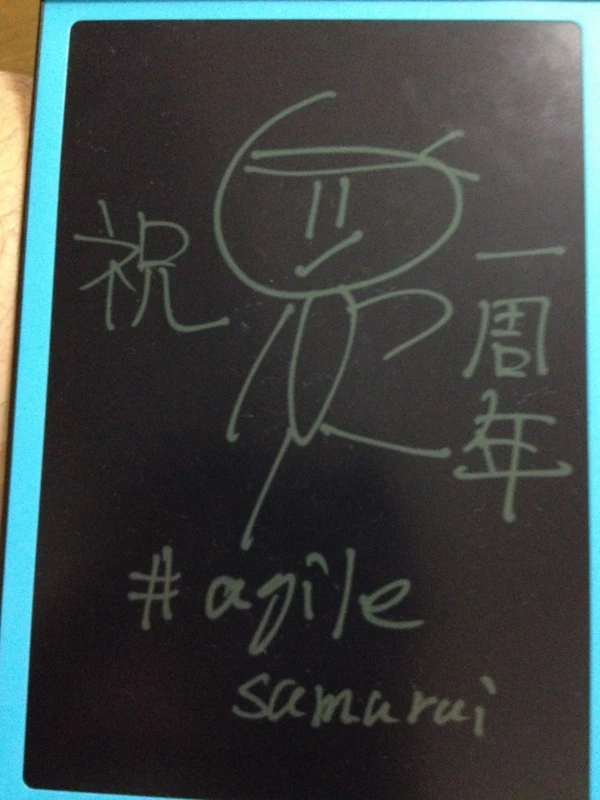 祝
一周年
#agile
samurai